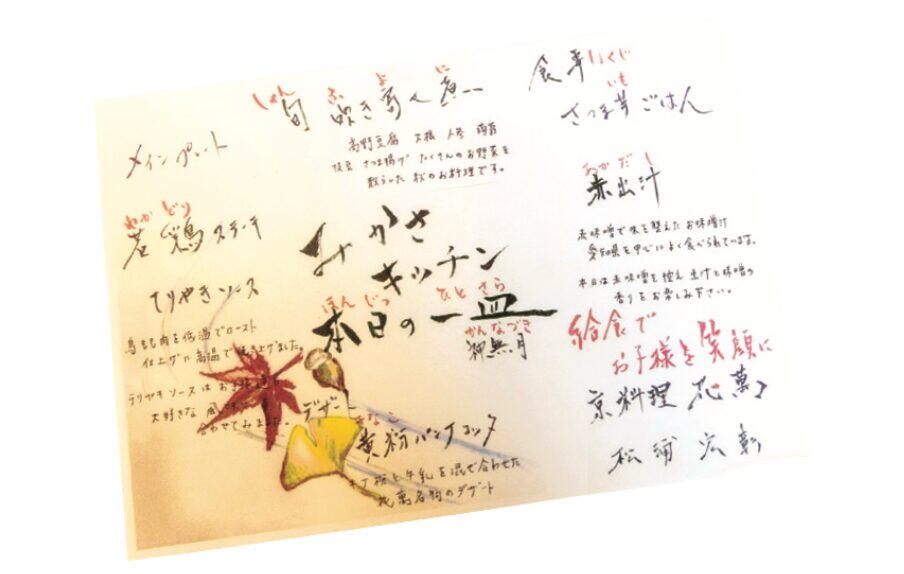 みかさ
キッチン
ほんじつ ひとさら
本日の一皿
かんなづき
神無月
しゅん ふ よ に
旬 吹き寄せ煮
高野豆腐 大根 人参 南瓜
枝豆 さつま揚げ たくさんのお野菜を
散らした 秋のお料理です。
メインプレート
わかどり
若鶏ステーキ
てりやきソース
鳥もも肉を低温でロースト
仕上げに高温で焼き上げました。
テリヤキソースはお子様達の
大好きな風味に
合わせてみました。
デザート
きなこ
黄粉パンナコッタ
きな粉と牛乳を混ぜ合わせた
花萬名物のデザート
食事 しょくじ
いも
さつま芋ごはん
あかだし
赤出汁
赤味噌で味を整えたお味噌汁
愛知県を中心によく食べられています。
本日は赤味噌を控え 出汁と味噌の
香りをお楽しみ下さい。
給食で
お子様を笑顔に
京料理 花萬
松浦 宏彰